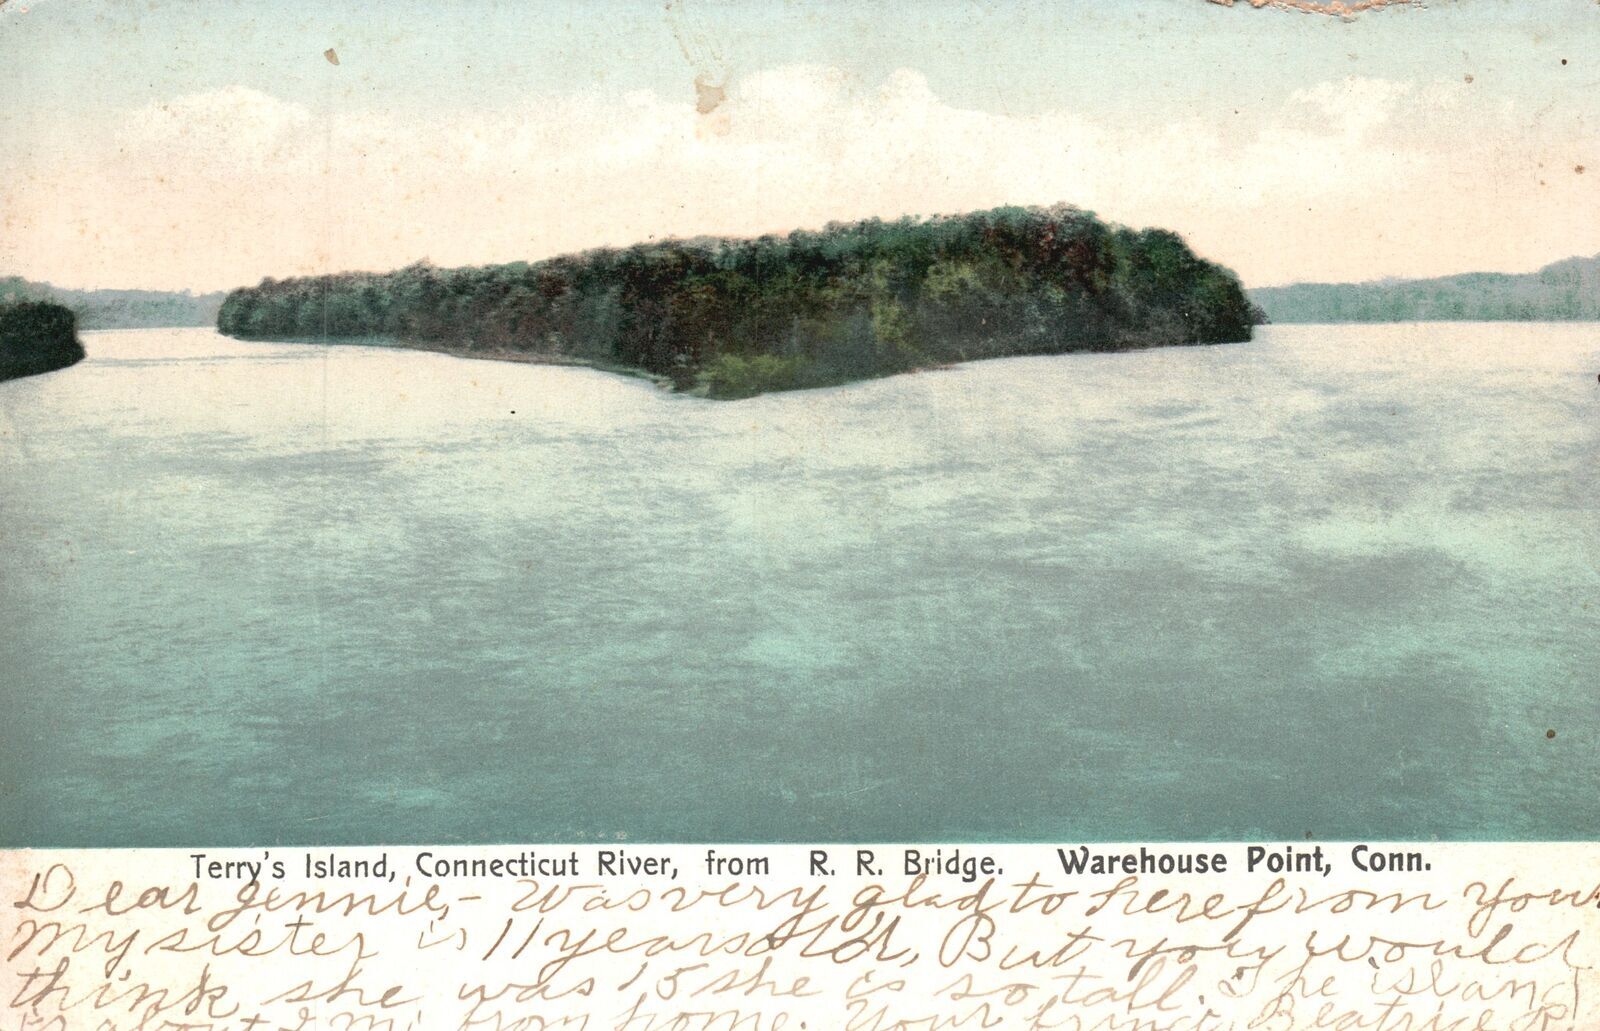 Terry's Island, Connecticut River, from R. R. Bridge. Warehouse Point, Conn.
Dear Jennie,- Was very glad to here from you
My sister is 11 years old, But you would
think she was 15 she is so tall. The island
is about 2 mi from home. Your friend Beatrice